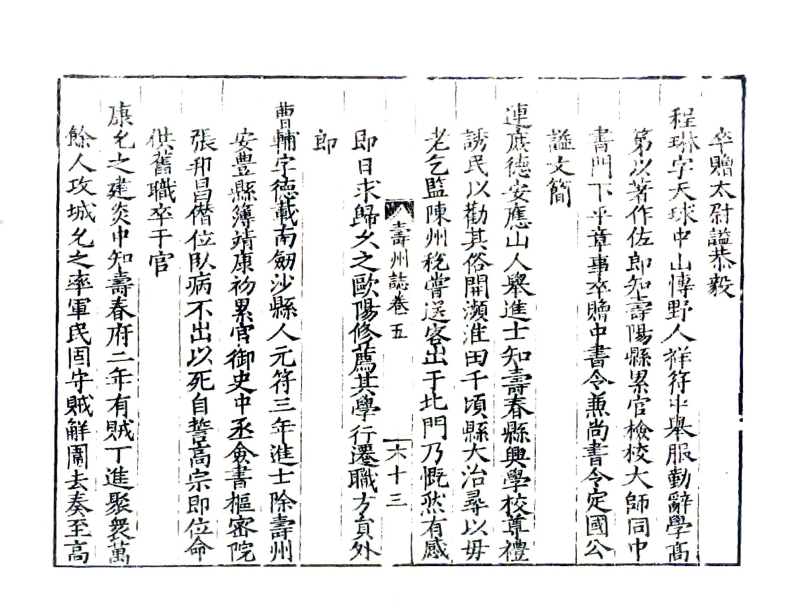 卒贈太尉謚恭毅
程琳字天球中山愽野人祥符中舉服勤辭學髙
第以著作佐郎知壽陽縣累官檢校大師同中
書門下平章事卒贈中書令兼尚書令定國公
謚文簡
連庻德安應山人舉進士知壽春縣興學校尊禮
誘民以勸其俗開瀕淮田千頃縣大治尋以毋
老乞監陳州稅嘗送客出于北門乃慨然有感
壽州誌卷五
六十三
即日求歸久之歐陽修薦其學行遷職方員外
郎
曹輔字德載南劒沙縣人元符三年進士除壽州
安豐縣簿靖康初累官御史中丞僉書樞密院
張邦昌僭位臥病不出以死自誓高宗即位命
供舊職卒于官
康允之建炎中知壽春府二年有賊丁進聚衆萬
餘人攻城允之率軍民固守賊解圍去奏至高